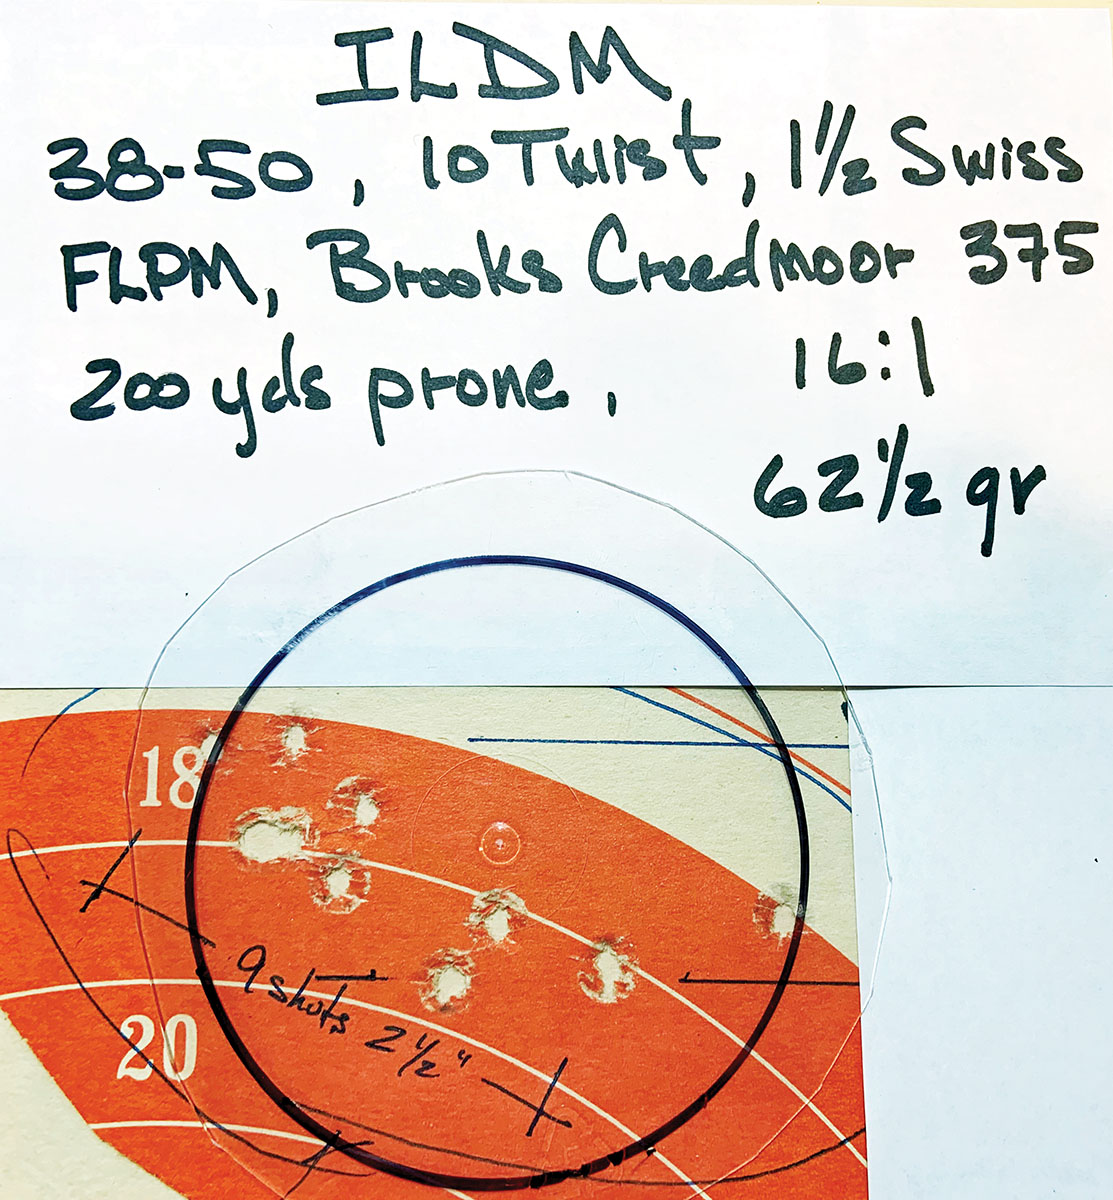 ILDM
38-50, 10 Twist, 1½ Swiss
FLPM, Brooks Creedmoor 375
200 yds prone, 16:1
62½ gr
18
9 shots 2½"
20